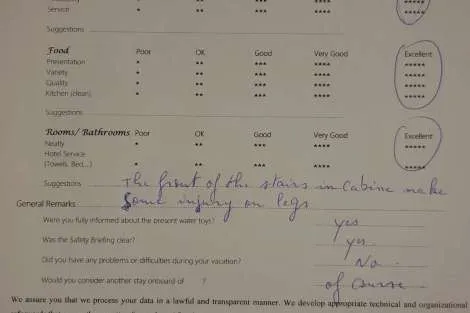 Service * ** *** **** *****
Suggestions
Food Poor OK Good Very Good Excellent
Presentation * ** *** **** *****
Variety * ** *** **** *****
Quality * ** *** **** *****
Kitchen (clean) * ** *** **** *****
Suggestions
Rooms/ Bathrooms Poor OK Good Very Good Excellent
Neatly * ** *** **** *****
Hotel Service
(Towels, Bed,...) * ** *** **** *****
Suggestions The front of the stairs in Cabine make
General Remarks Some injury on legs
Were you fully informed about the present water toys? yes
Was the Safety Briefing clear? yes
Did you have any problems or difficulties during your vacation? No.
Would you consider another stay onboard of ? of course
We assure you that we process your data in a lawful and transparent manner. We develop appropriate technical and organizational